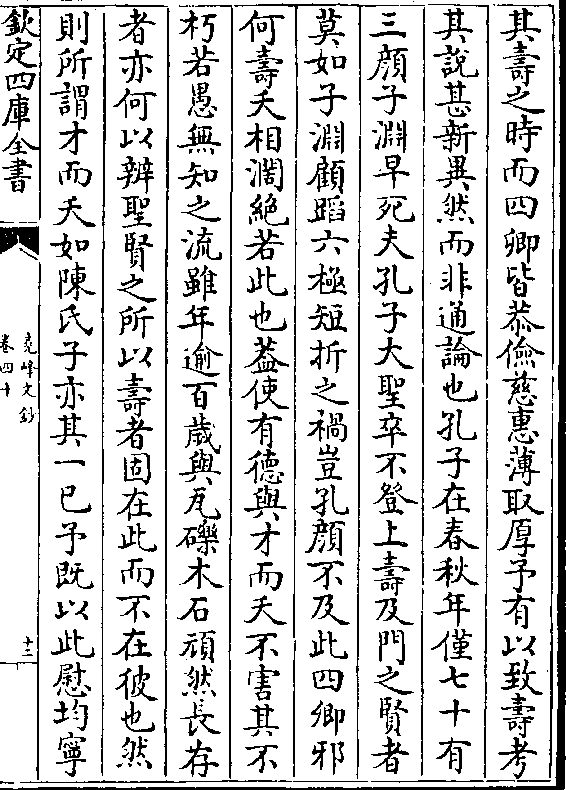 其壽之時而四卿皆恭儉慈惠薄取厚予有以致壽考
其說甚新異然而非通論也孔子在春秋年僅七十有
三顔子淵早死夫孔子大聖卒不登上壽及門之賢者
莫如子淵顧蹈六極短折之禍豈孔顔不及此四卿邪
何壽夭相濶絶若此也葢使有德與才而夭不害其不
朽若愚無知之流雖年逾百歲與瓦礫木石頑然長存
者亦何以辨聖賢之所以壽者固在此而不在彼也然
則所謂才而夭如陳氏子亦其一已予既以此慰均寧
欽定四庫全書
堯峰文鈔
卷四十
十二